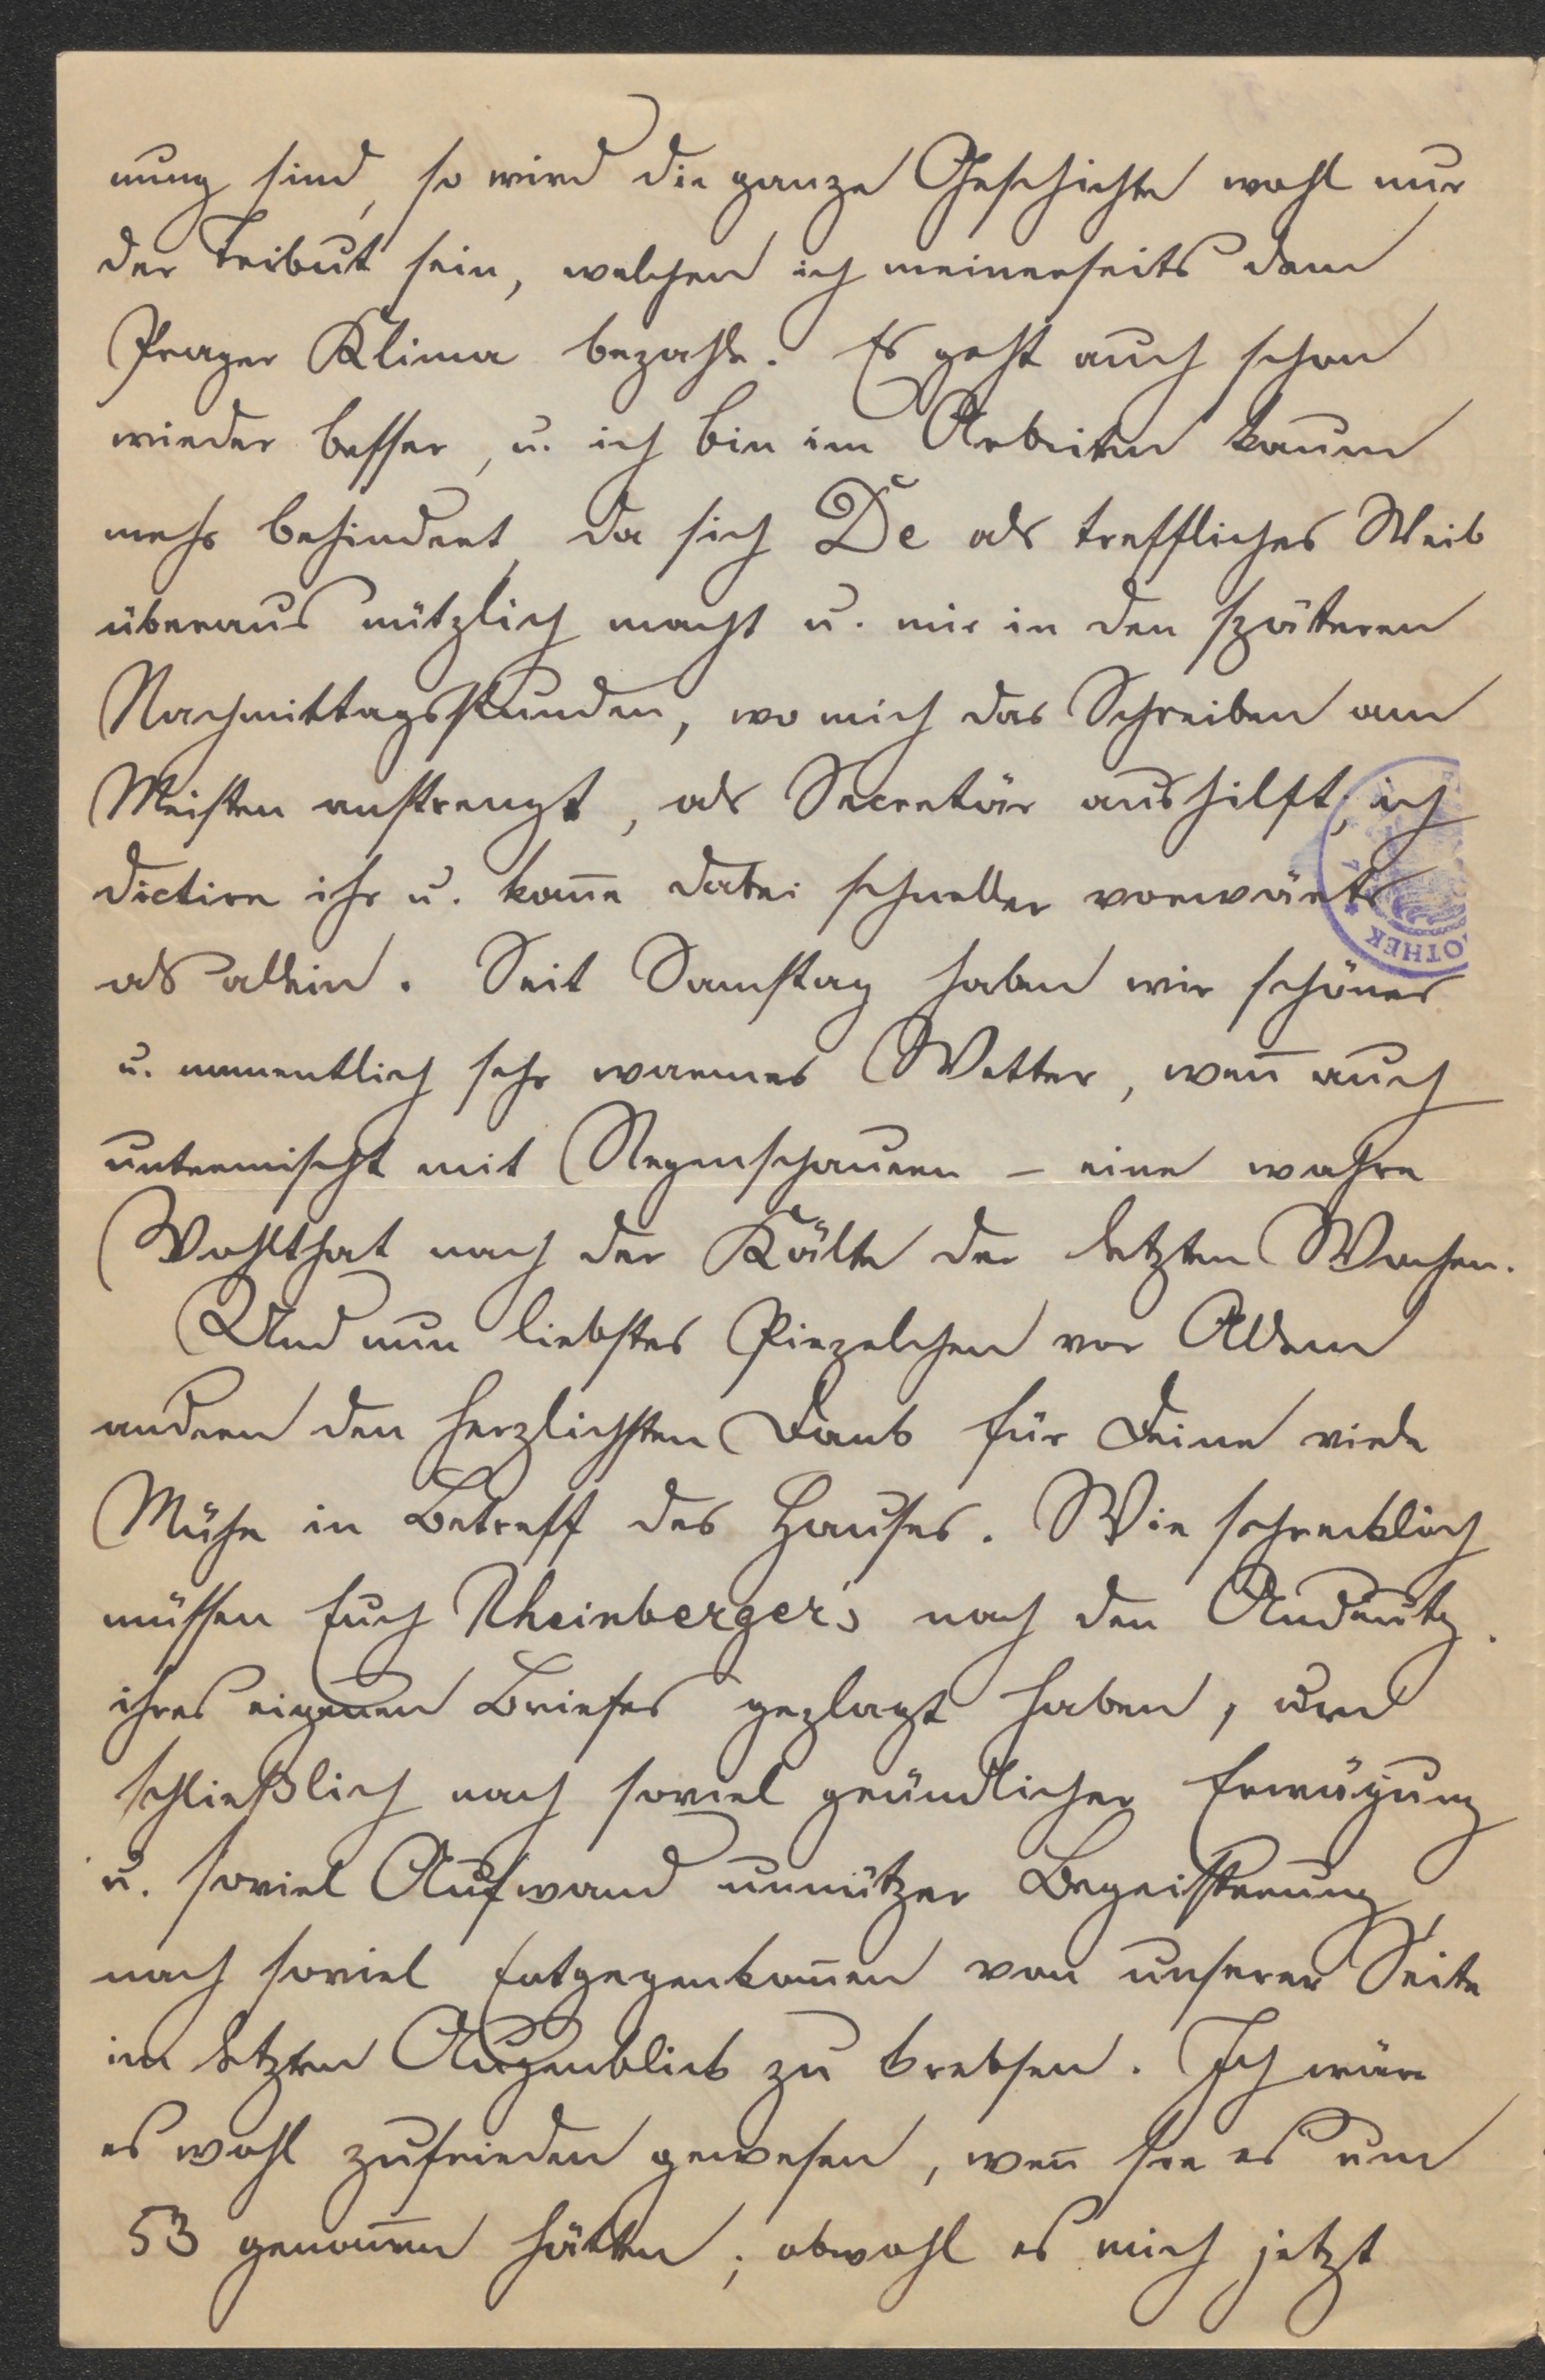 nung sind, so wird die ganze Geschichte wohl nur
der Tribut sein, welchen ich meinerseits dem
Prager Klima bezahle. Es geht auch schon
wieder besser, u. ich bin im Arbeiten kaum
mehr behindert, da sich De als treffliches Weib
überaus nützlich macht u. mir in den späteren
Nachmittagsstunden, wo mich das Schreiben am
Meisten anstrengt, als Secretär aushilft; ich
dictire ihr u. kom̅e dabei schneller vorwärts
als allein. Seit Samstag haben wir schönes
u. namentlich sehr warmes Wetter, wen̅ auch
untermischt mit Regenschauern – eine wahre
Wohlthat nach der Kälte der letzten Wochen.
Und nun liebstes Piezelchen vor Allem
andern den herzlichsten Dank für Deine viele
Mühe in Betreff des Hauses. Wie schrecklich
müssen Euch Rheinberger's nach den Andeutg.
ihres eigenen Briefes geplagt haben, um
schließlich nach soviel gründlicher Erwägung
u. soviel Aufwand unnützer Begeisterung,
nach soviel Entgegenkom̅en von unserer Seite
im letzten Augenblick zu krebsen. Ich wäre
es wohl zufrieden gewesen, wen̅ sie es um
53 genom̅en hätten; obwohl es mich jetzt
OTHEK